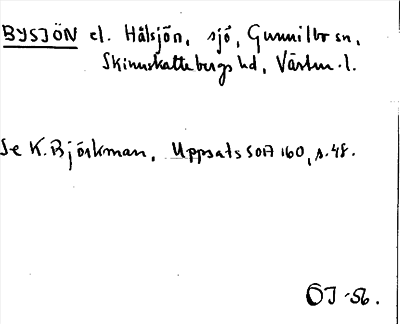 BYSJÖN el. Hålsjön, sjö, Gunnilbo sn,
Skinnskattebergs hd, Västm. l.
Se K. Björkman, Uppsats SOÄ 160, s. 48.
ÖJ -56.